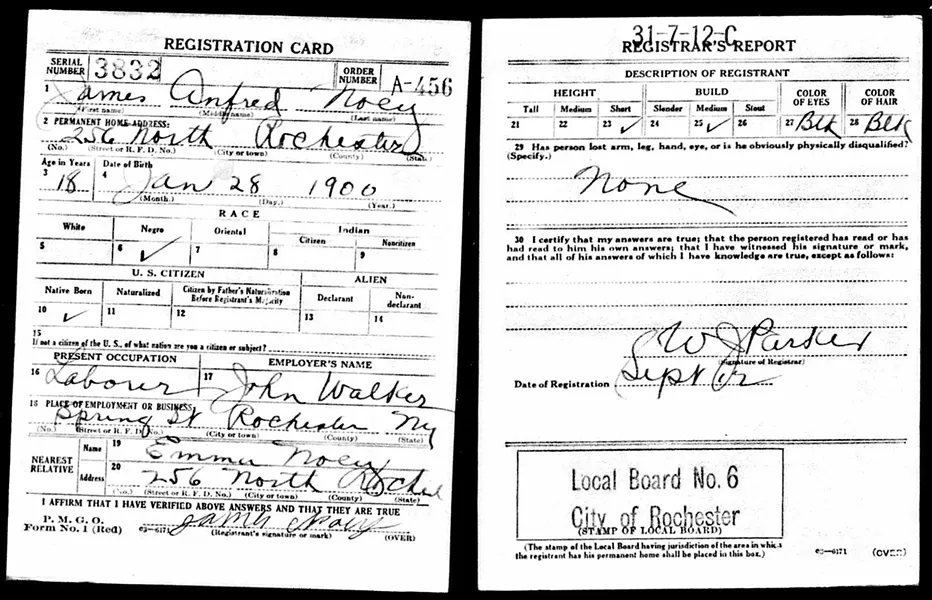 REGISTRATION CARD
SERIAL NUMBER 3832 ORDER NUMBER A-456
1 James Anfred Noey
(First name) (Middle name) (Last name)
2 PERMANENT HOME ADDRESS:
256 North Rochester
(No.) (Street or R. F. D. No.) (City or town) (County) (State)
Age in Years Date of Birth
3 18 4 Jan 28 1900
(Month.) (Day.) (Year.)
RACE
White Negro Oriental Indian
Citizen Noncitizen
5 6 ✓ 7 8 9
U. S. CITIZEN ALIEN
Native Born Naturalized Citizen by Father's Naturalization Before Registrant's Majority Declarant Non-declarant
10 ✓ 11 12 13 14
15
If not a citizen of the U. S., of what nation are you a citizen or subject?
PRESENT OCCUPATION EMPLOYER'S NAME
16 Laborer 17 John Walker
18 PLACE OF EMPLOYMENT OR BUSINESS:
Spring St Rochester Ny
(No.) (Street or R. F. D. No.) (City or town) (County) (State)
NEAREST RELATIVE Name 19 Emma Noey
Address 20 256 North
(No.) (Street or R. F. D. No.) (City or town) (County) (State)
I AFFIRM THAT I HAVE VERIFIED ABOVE ANSWERS AND THAT THEY ARE TRUE
P. M. G. O.
Form No. 1 (Red) 03—6171 James Noey
(Registrant's signature or mark) (OVER)
31-7-12-C
REGISTRAR'S REPORT
DESCRIPTION OF REGISTRANT
HEIGHT BUILD COLOR OF EYES COLOR OF HAIR
Tall Medium Short Slender Medium Stout
21 22 23 ✓ 24 25 ✓ 26 27 Blk 28 Blk
29 Has person lost arm, leg, hand, eye, or is he obviously physically disqualified?
(Specify.)
None
30 I certify that my answers are true; that the person registered has read or has
had read to him his own answers; that I have witnessed his signature or mark,
and that all of his answers of which I have knowledge are true, except as follows:
W J Parker
(Signature of Registrar)
Date of Registration Sept 12
Local Board No. 6
City of Rochester
(STAMP OF LOCAL BOARD)
(The stamp of the Local Board having jurisdiction of the area in which
the registrant has his permanent home shall be placed in this box.)
03—6171 (OVER)